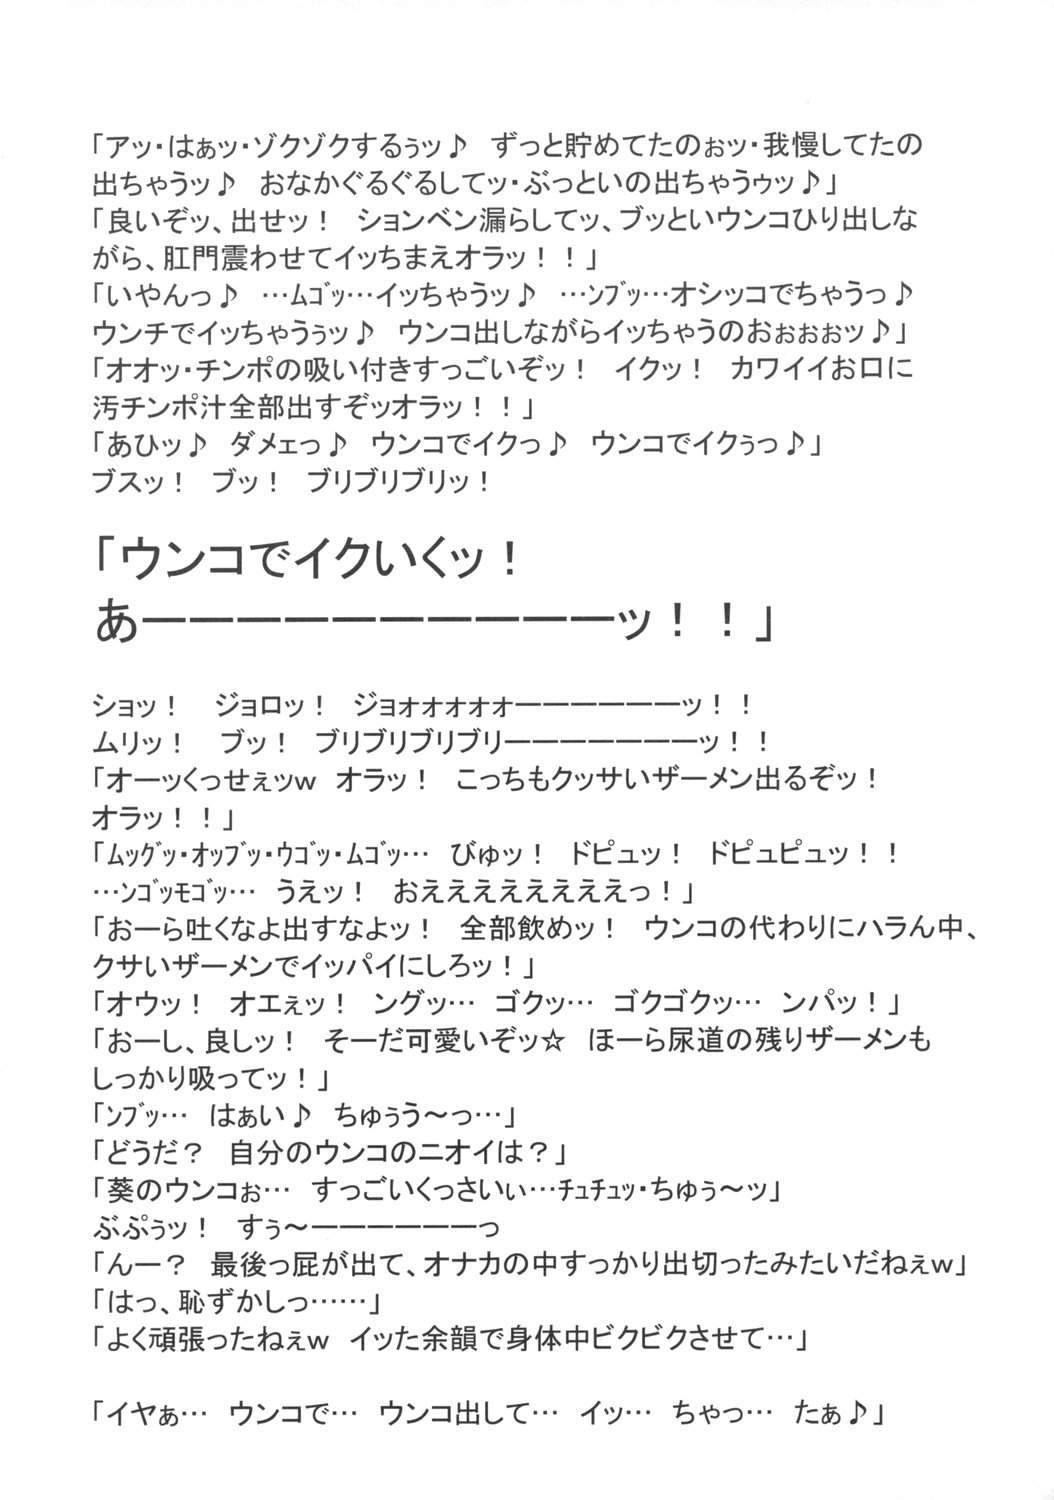 「アッ・はぁッ・ゾクゾクするぅッ♪　ずっと貯めてたのぉッ・我慢してたの
出ちゃうッ♪　おなかぐるぐるしてッ・ぶっといの出ちゃうゥッ♪」
「良いぞッ、出せッ！　ションベン漏らしてッ、ブッといウンコひり出しな
がら、肛門震わせてイッちまえオラッ！！」
「いやんっ♪　…ﾑｺﾞｯ…イッちゃうッ♪　…ﾝﾌﾞｯ…オシッコでちゃうっ♪
ウンチでイッちゃうぅッ♪　ウンコ出しながらイッちゃうのおぉぉぉッ♪」
「オオッ・チンポの吸い付きすっごいぞッ！　イクッ！　カワイイお口に
汚チンポ汁全部出すぞッオラッ！！」
「あひッ♪　ダメェっ♪　ウンコでイクっ♪　ウンコでイクぅっ♪」
ブスッ！　ブッ！　ブリブリブリッ！
「ウンコでイクいくッ！
あーーーーーーーーーーッ！！」
ショッ！　ジョロッ！　ジョォォォォォーーーーーーッ！！
ムリッ！　ブッ！　ブリブリブリブリーーーーーーーッ！！
「オーッくっせぇッｗ　オラッ！　こっちもクッサいザーメン出るぞッ！
オラッ！！」
「ﾑｯｸﾞｯ・ｵｯﾌﾞｯ・ｳｺﾞｯ・ﾑｺﾞｯ…　びゅッ！　ドピュッ！　ドピュピュッ！！
…ﾝｺﾞｯﾓｺﾞｯ…　うえッ！　おええええええええっ！」
「おーら吐くなよ出すなよッ！　全部飲めッ！　ウンコの代わりにハラん中、
クサいザーメンでイッパイにしろッ！」
「オウッ！　オエェッ！　ングッ…　ゴクッ…　ゴクゴクッ…　ンパッ！」
「おーし、良しッ！　そーだ可愛いぞッ☆　ほーら尿道の残りザーメンも
しっかり吸ってッ！」
「ﾝﾌﾞｯ…　はぁい♪　ちゅぅう～っ…」
「どうだ？　自分のウンコのニオイは？」
「葵のウンコぉ…　すっごいくっさいぃ…ﾁｭﾁｭｯ・ちゅぅ～ッ」
ぶぷぅッ！　すぅ～ーーーーーーーっ
「んー？　最後っ屁が出て、オナカの中すっかり出切ったみたいだねぇｗ」
「はっ、恥ずかしっ……」
「よく頑張ったねぇｗ　イッた余韻で身体中ビクビクさせて…」
「イヤぁ…　ウンコで…　ウンコ出して…　イッ…　ちゃっ…　たぁ♪」